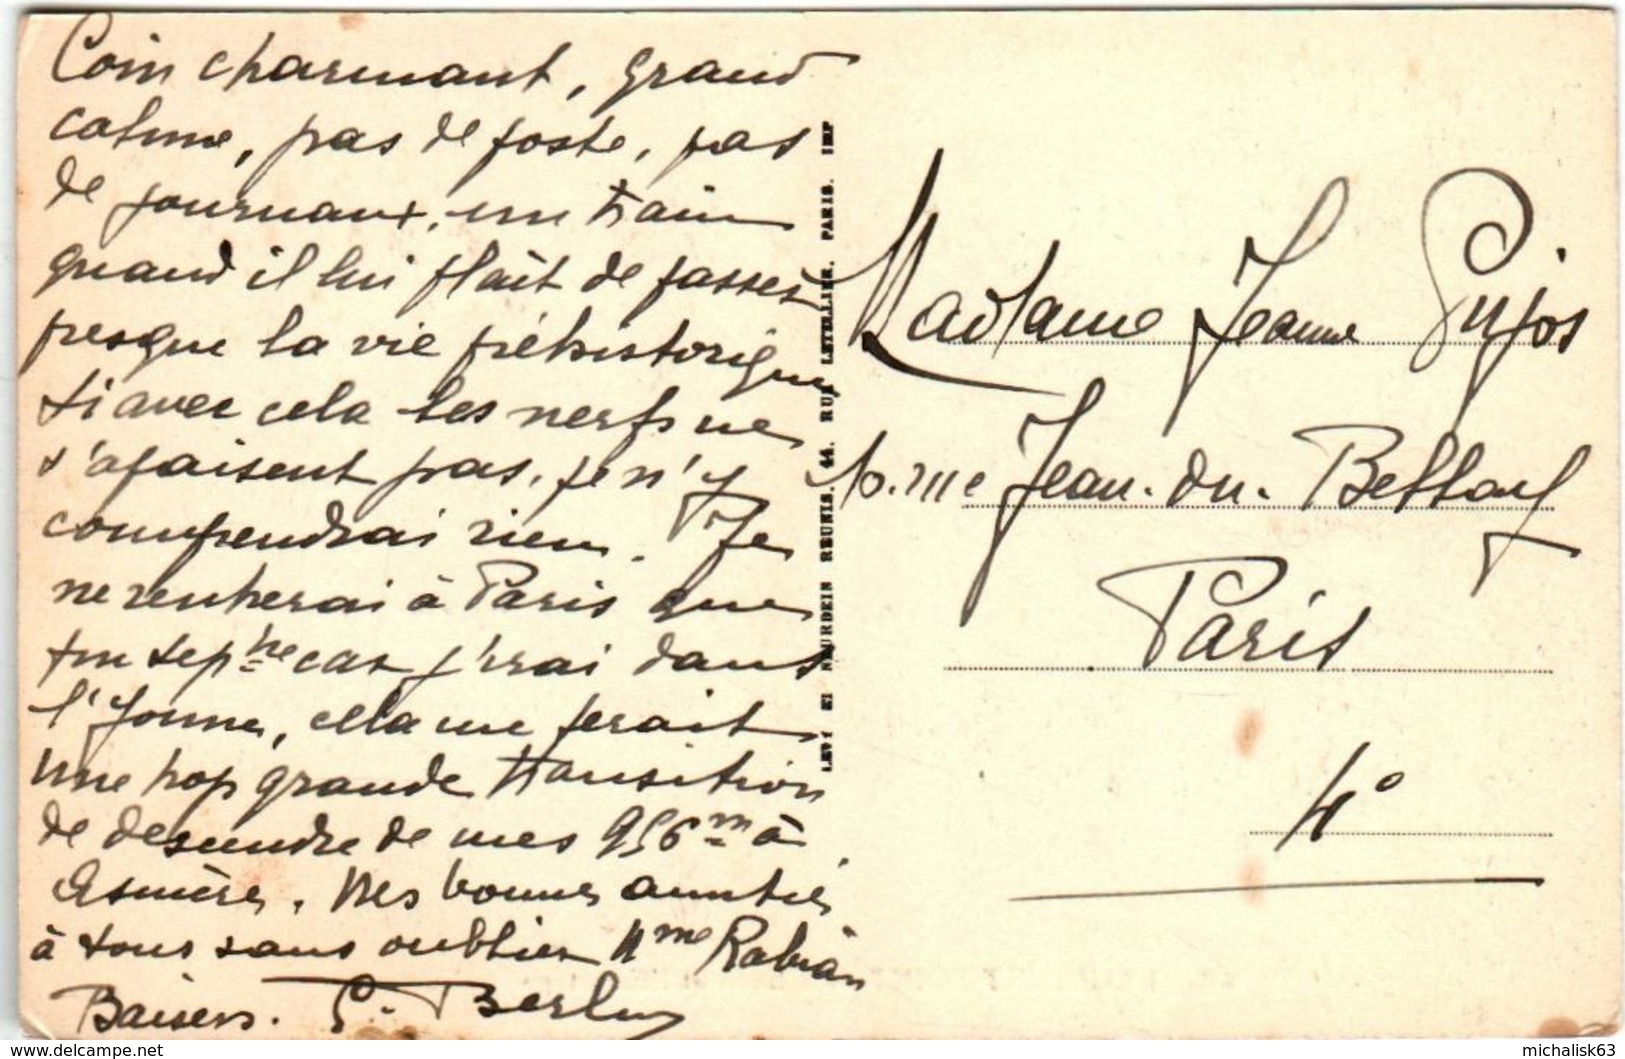 Coin charmant, grand
calme, pas de poste, pas
de journaux, un train
quand il lui plaît de passer
presque la vie préhistorique
si avec cela les nerfs ne
s'apaisent pas, je n'y
comprendrai rien. Je
ne rentrerai à Paris que
fin sep^bre car j'irai dans
l'Yonne, cela me ferait
une trop grande transition
de descendre de mes 956^m à
Asnières. Mes bonnes amitiés
à tous sans oublier M^me
Baisers.
LEVY ET NEURDEIN REUNIS. 44. RUE LETELLIER. PARIS. IMP
Madame Jeanne Pujos
10. rue Jean. du. Bellay
Paris
4°
delcampe.net
michalisk63